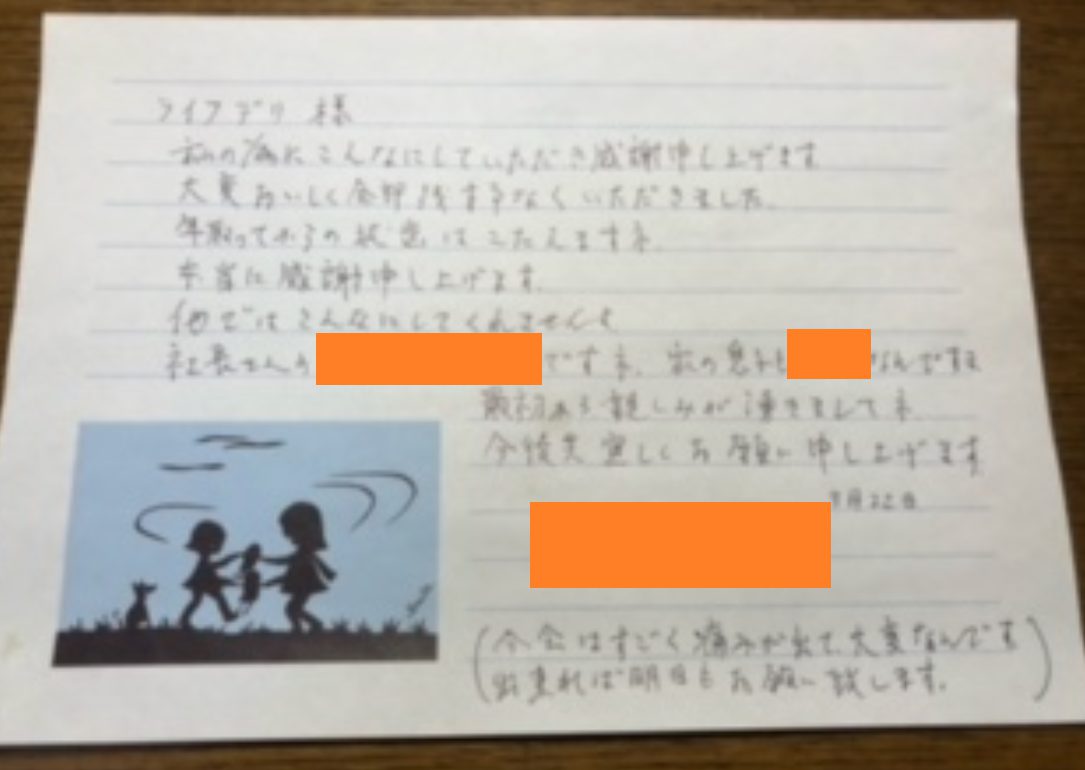 ライフデリ 様
私の為にこんなにしていただき感謝申し上げます
大変おいしく全部残す事なくいただきました。
年取ってからの状態はこたえますネ。
本当に感謝申し上げます。
他ではこんなにしてくれませんよ
社長さんも ですネ、私の息子も なんですネ
最初から親しみが湧きましてネ。
今後共宜しくお願い申し上げます
月22日
(今会はすごく痛みが出て大変なんです
出来れば明日もお願い致します。)